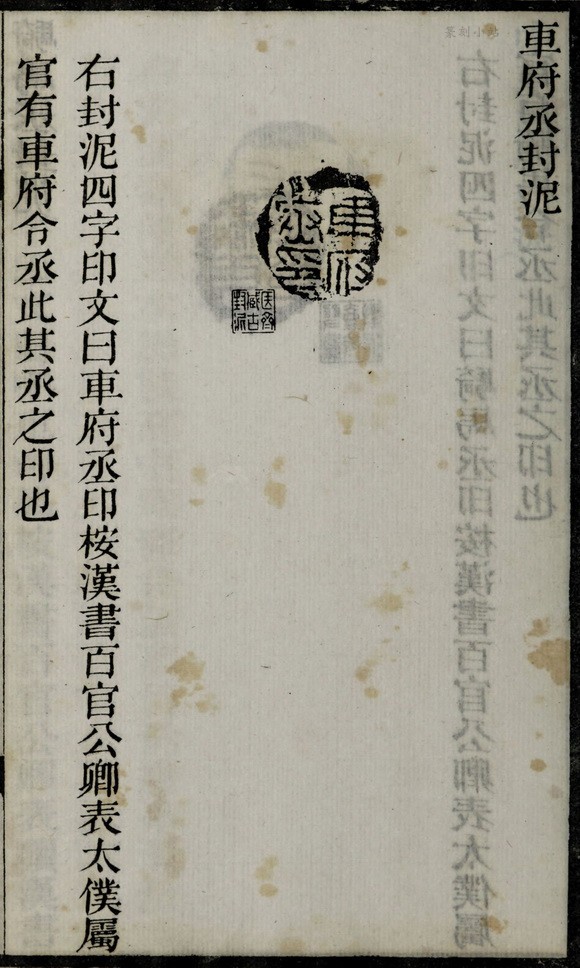 車府丞封泥
車府
丞印
右封泥四字印文曰車府丞印桉漢書百官公卿表太僕屬
官有車府令丞此其丞之印也